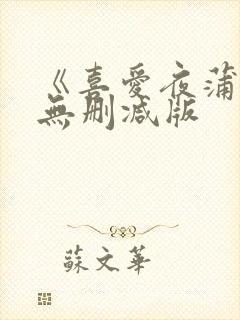 《喜愛夜蒲
無刪減版
蘇文華